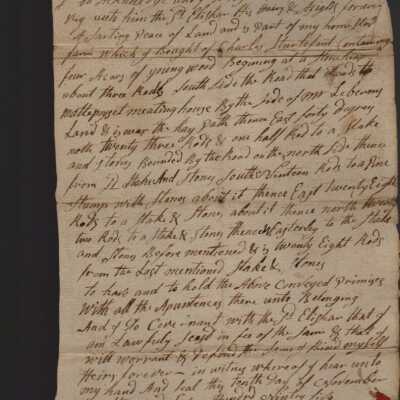 unto him the Sd Elishar His heirs & assigns forever
A Sarting Peace of Land and is Part of my home stead
farm which I bought of Charles Sturtefant Containing
four Acars of young wood Begining at a
about three Rods South side the Road that Leads to
mattepyset meating house By the Side of mr
Land & is near the hay path thence East forty degrees
north twenty three Rods & one half Rod to a Stake
and Stones Bounded By the Road on the north Side thence
from Sd Stake And Stones South Rods to a Pine
Stump with Stones about it thence East twenty Eight
Rods to a Stake & Stones about it thence north
two Rods to a Stake & Stones thence Easterly to the Stake
and Stones Before mentioned & is twenty Eight Rods
from the Last mentioned Stake & Stones
to have and to hold the Above Conveyed Primises
With all the Apurtences there unto Belonging
And I Do Cove-nant with the Sd Elishar that I
am Lawfuly Seazd in fee of the Same & that I
will warrant & Defend the Same & Bind myself
Heirs forever - in witnes whereof I hear unto
my hand And Seal this tenth Day of November
Hundred Ninty five